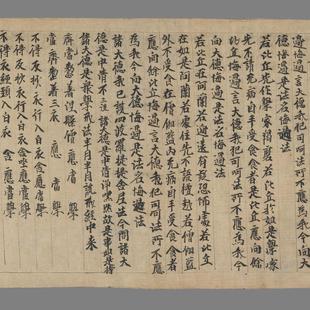 邊悔過言大德我犯可呵法所不應為我今向大
德悔過是名悔過法
若比丘先作學家羯磨若比丘於如是學家
先不請無病自手受食食者是比丘應向餘
比丘悔過言大德我犯可呵法所不應為我今向
大德悔過是名悔過法
若比丘在阿蘭若迥遠有疑恐怖處若比丘
在如是阿蘭若處住先不語檀越若僧伽藍
外不受食在僧伽藍內無病自手受食食者
應向餘比丘悔過言大德我犯可呵法所不應
為我今向大德悔過是名悔過法
諸大德我已說四波羅提提舍尼法今問諸大
德是中清淨不三說諸大德是中清淨默然故是事如是持
諸大德是眾學戒法半月半月說戒經中來
當齊整著涅槃僧應當學
當齊整著三衣應當學
不得反抄衣行入白衣舍應當學
不得反抄衣入白衣舍坐應當學
不得衣纏頸入白衣舍應當學